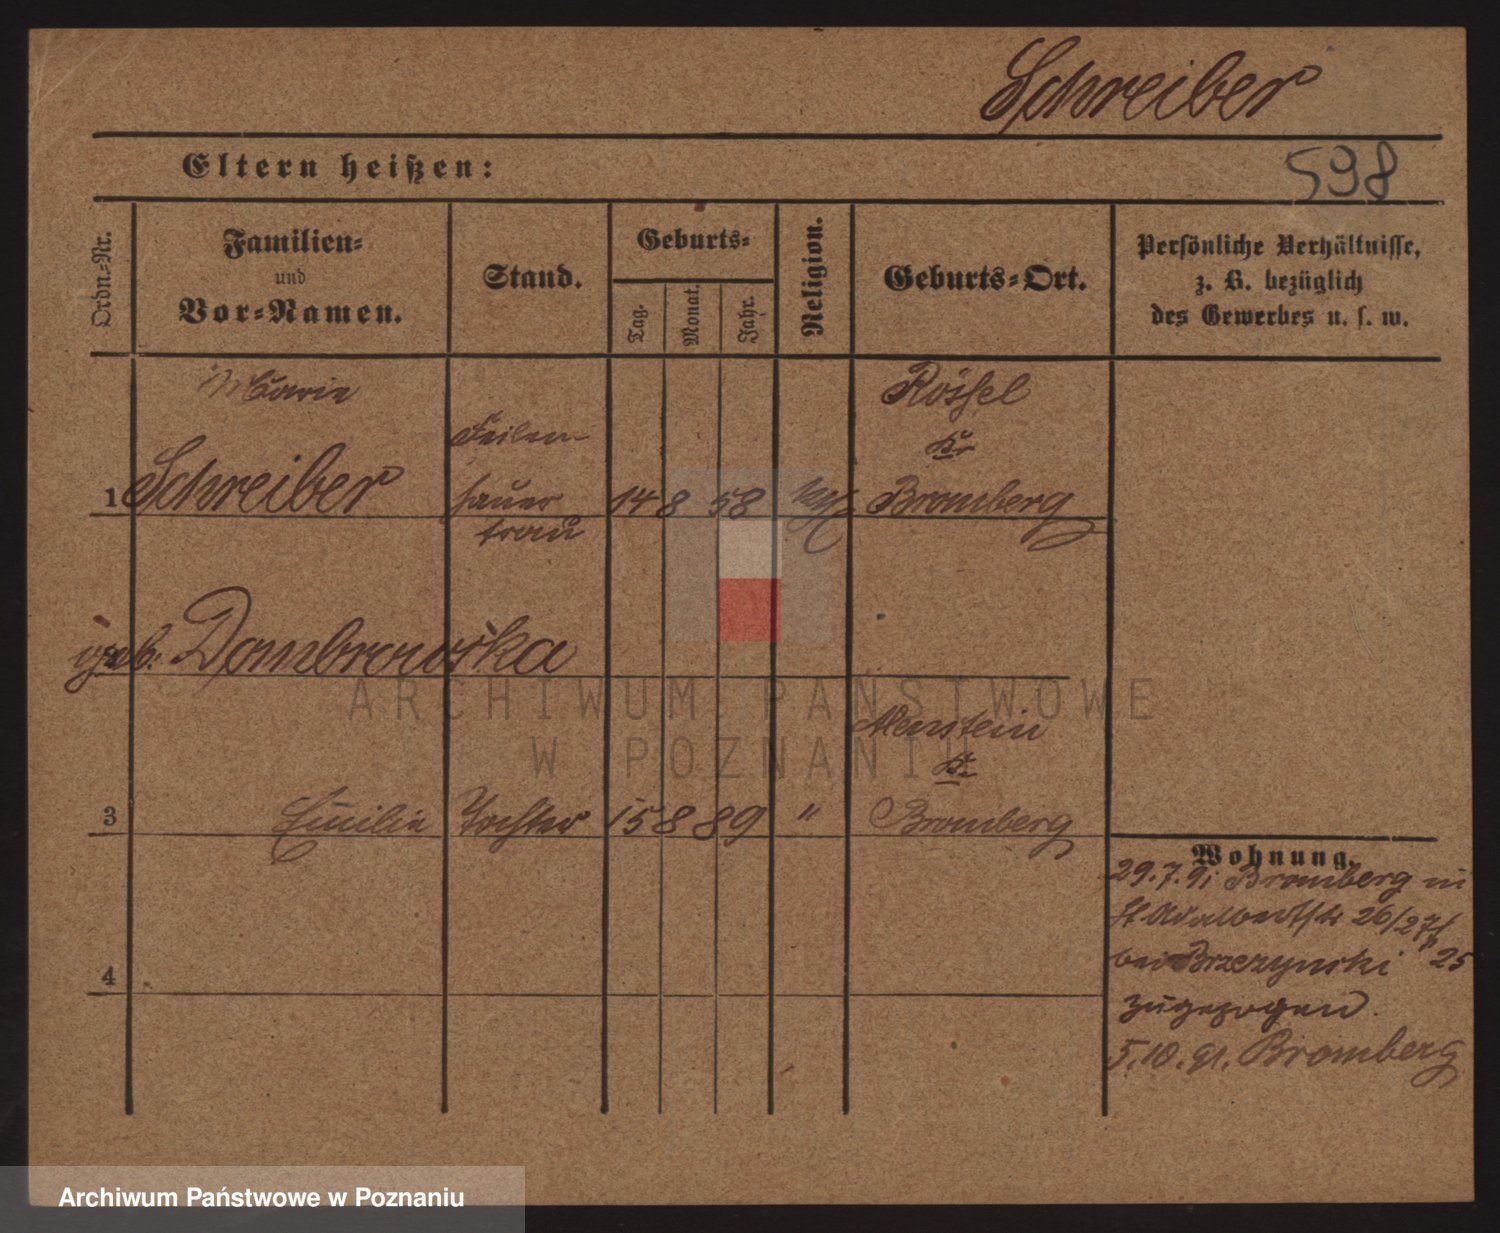 Schreiber
Eltern heißen:
598
Ordn.-Nr.
Familien-
und
Vor-Namen.
Stand.
Geburts-
Tag.
Monat.
Jahr.
Religion.
Geburts-Ort.
Persönliche Verhältnisse,
z. B. bezüglich
des Gewerbes u. s. w.
Marie
Rössel
Feilen-
Kr
1 Schreiber hauer 14 8 58 Bromberg
frau
geb. Dombrowska
ARCHIWUM PAŃSTWOWE
W POZNANIU
Allenstein
Kr
3 Emilie Tochter 15 8 89 " Bromberg
Wohnung.
29.7.91 Bromberg in
St Adalbertstr 26/27
bei Brzezynski 25
zugezogen.
4
5.10.91. Bromberg
Archiwum Państwowe w Poznaniu